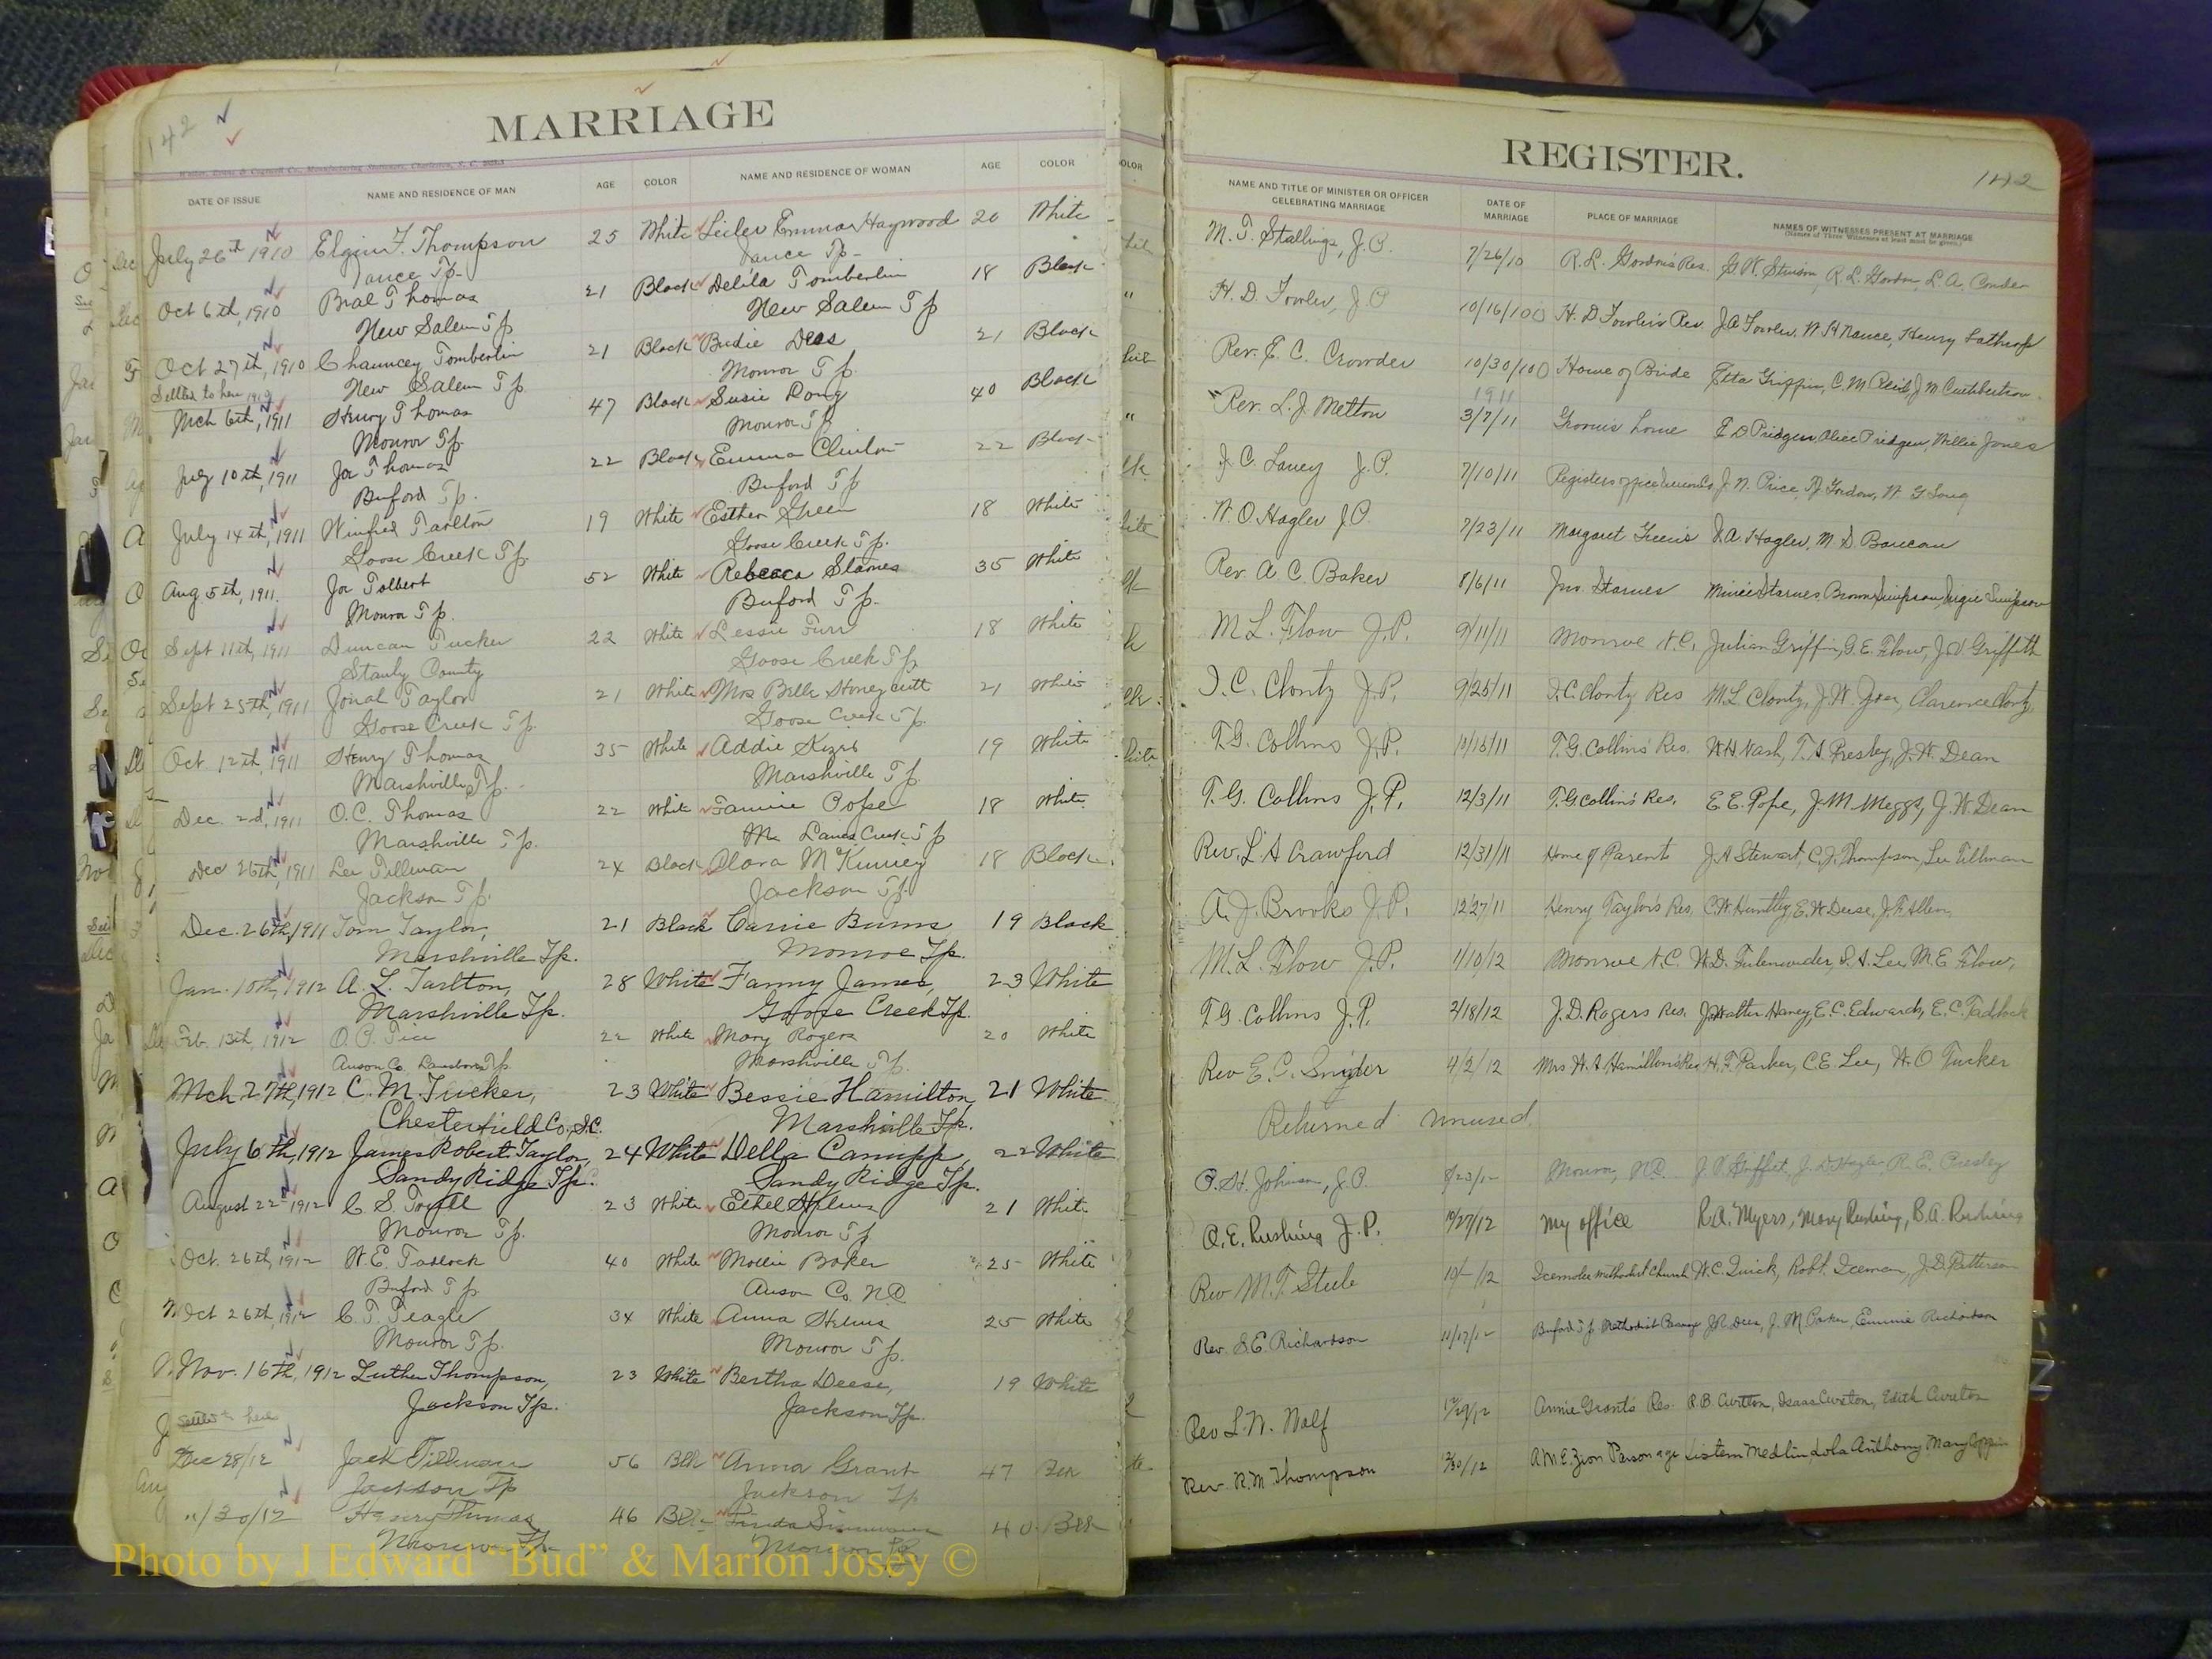 142
MARRIAGE
DATE OF ISSUE NAME AND RESIDENCE OF MAN AGE COLOR NAME AND RESIDENCE OF WOMAN AGE COLOR
July 26th 1910 Elgin F. Thompson 25 White Emma Haywood 20 White
Vance Tp- Vance Tp-
Oct 6th, 1910 Thomas 21 Black Delila Tomberlin 18 Black
New Salem Tp New Salem Tp
Oct 27th, 1910 Chauncey Tomberlin 21 Black Budie Dees 21 Black
Settled to here New Salem Tp Monroe Tp.
Mch 6th, 1911 Henry Thomas 47 Black Susie 40 Black
Monroe Tp. Monroe Tp
July 10th, 1911 Joe Thomas 22 Black Emma Clinton 22 Black
Buford Tp. Buford Tp
July 14th, 1911 Winfred Tarlton 19 White Esther Green 18 White
Goose Creek Tp Goose Creek Tp.
Aug 5th, 1911. Joe Tolbert 52 White Rebecca Starnes 35 White
Monroe Tp. Buford Tp.
Sept 11th, 1911 Duncan Tucker 22 White Lessie Furr 18 White
Stanly County Goose Creek Tp
Sept 25th, 1911 Jonal Taylor 21 White Mrs Belle Honeycutt 21 White
Goose Creek Tp. Goose Creek Tp.
Oct. 12th, 1911 Henry Thomas 35 White Addie 19 White
Marshville Tp. Marshville Tp
Dec. 2d, 1911 O.C. Thomas 22 White Fannie Pope 18 White
Marshville Tp. Lanes Creek Tp
Dec 26th, 1911 Lee Tillman 24 Black McKinney 18 Black
Jackson Tp. Jackson Tp.
Dec. 26th, 1911 Tom Taylor, 21 Black Carrie Burns 19 Black
Marshville Tp. Monroe Tp.
Jan. 10th, 1912 A. L. Tarlton, 28 White Fanny James, 23 White
Marshville Tp. Goose Creek Tp.
Feb. 13th, 1912 O. P. Tice 22 White Mary Rogers 20 White
Anson Co. Lanesboro Tp Marshville Tp.
Mch 27th, 1912 C. M. Tucker, 23 White Bessie Hamilton 21 White
Chesterfield Co., S.C. Marshville Tp.
July 6th, 1912 James Robert Taylor, 24 White Della 22 White
Sandy Ridge Tp. Sandy Ridge Tp.
August 22nd 1912 C. S. 23 White Ethel Helms 21 White
Monroe Tp. Monroe Tp
Oct. 26th, 1912 W. E. Tadlock 40 White Mollie Baker 25 White
Buford Tp Anson Co. NC
Oct 26th, 1912 C. T. Teagle 34 White Anna Helms 25 White
Monroe Tp. Monroe Tp.
Nov. 16th, 1912 Luther Thompson, 23 White Bertha Deese, 19 White
Jackson Tp. Jackson Tp.
Settled to here
Dec 28/12 Jack Tillman 56 Blk Anna Grant 47 Blk
Jackson Tp Jackson Tp
"/30/12 Henry Thomas 46 Blk 40 Blk
Monroe Tp Monroe Tp
REGISTER.
142
NAME AND TITLE OF MINISTER OR OFFICER CELEBRATING MARRIAGE DATE OF MARRIAGE PLACE OF MARRIAGE NAMES OF WITNESSES PRESENT AT MARRIAGE
(Names of Three Witnesses at least must be given.)
M. T. Stallings, J.P. 7/26/10 R. L. Gordon's Res. G. W. Stinson, R. L. Gordon, L. A. Conder
H. D. Fowler, J.P. 10/16/10 H. D. Fowler's Res. J A Fowler, W. H Nance, Henry Lathrop
Rev. E. C. Crowder 10/30/10 Home of Bride Etta Griffin, C. M J. M Cuthbertson
1911
Rev. L. J. Melton 3/7/11 Groom's home E D Pridgen, Alice Pridgen, Willie Jones
J. C. Laney J. P. 7/10/11 Registers office J. N. Price, Gordon, W. G Long
W. O. Hagler J P. 7/23/11 Margaret Green's J. A. Hagler, M. D. Baucom
Rev. A C. Baker 8/6/11 Jno. Starnes Starnes, Simpson, Simpson
M L. Flow J. P. 9/11/11 Monroe N.C. Julian Griffin, G. E. Flow, J. Griffith
I. C. Clontz J. P. 9/25/11 I. C. Clontz Res M L Clontz, J. W. Clarence Clontz
T. G. Collins J. P. 10/15/11 T. G. Collins' Res. W H Nash, Presley, J. W. Dean
T. G. Collins J. P. 12/3/11 T. G Collins' Res. E. E. Pope, J. M. Meggs, J. W. Dean
Rev. L. A Crawford 12/31/11 Home of Parents J. A Stewart, C. J. Thompson, Lee Tillman
A. J. Brooks J. P. 12/27/11 Henry Taylor's Res, C. W. Huntley, E. W Deese, J. F. Allen
M. L. Flow J. P. 1/10/12 Monroe N. C. W. D. Fulenwider, Lee, M. E Flow,
T. G. Collins J. P. 2/18/12 J. D. Rogers Res. J. Walter Haney, E. C. Edwards, E. C. Tadlock
Rev E. C. Snyder 4/2/12 Mrs Hamilton's Res H. F. Parker, C. E. Lee, W. O Tucker
Returned unused
St. Johnson, J. P. 8/23/12 Monroe, N.C. Griffith, J. D Hagler, R. E. Presley
A. E. Rushing J. P. 10/27/12 My office R. A. Myers, Mary Rushing, B. A. Rushing
Rev M. T. Steele 10/- /12 Icemorlee Methodist Church W. C. Quick, Robt. Iceman, J. D. Patterson
Rev. S. E. Richardson 11/17/12 Buford Tp Methodist J. R. Dees, J. M Parker, Emmie Richardson
Rev L. W. Nalf 12/29/12 Annie Grant's Res. R. B. Cureton, Isaac Cureton, Edith Cureton
Rev. R. M. Thompson 12/30/12 A M E. Zion Parsonage Medlin, Lola Anthony, Mary
Photo by J Edward “Bud” & Marion Josey ©